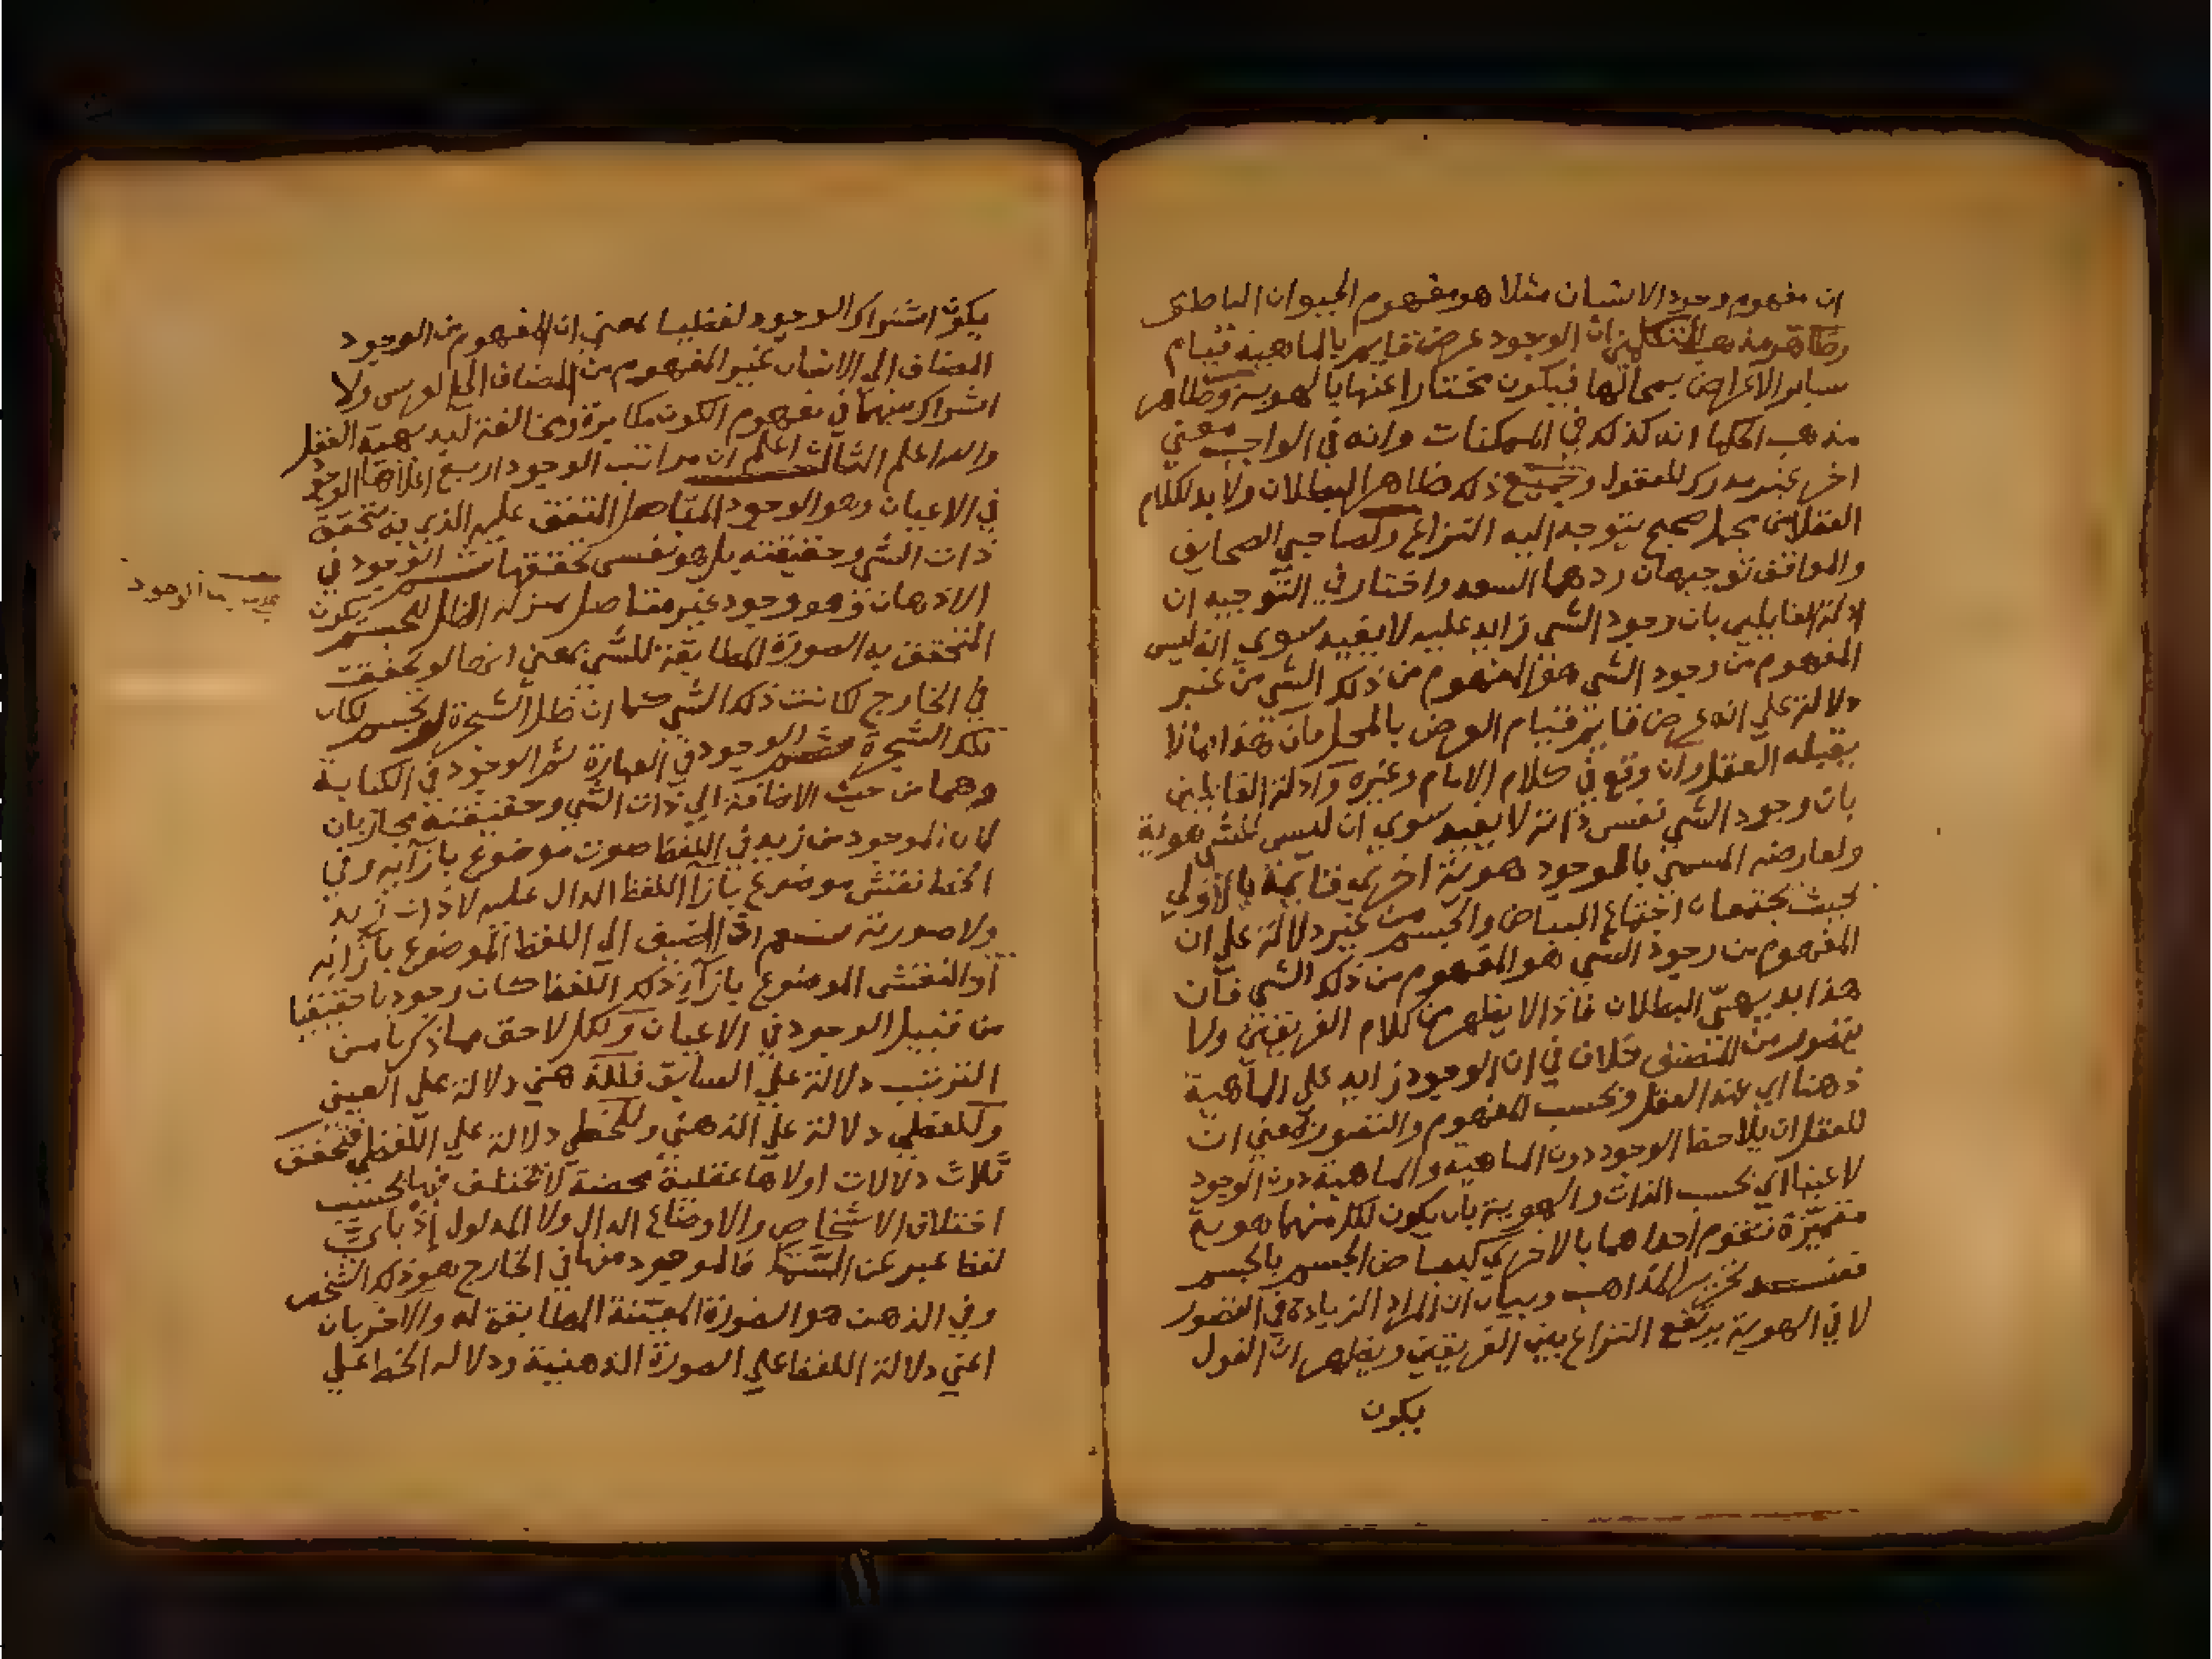 ان مفهوم وجود الانسان مثلا هو مفهوم الحيوان الناطق
وظاهر مذهب المتكلمين ان الوجود عرض قايم بالماهية قيام
ساير الاعراض بمحالها فيكون ممتازا عنها بالهوية وظاهر
مذهب الحكما انه كذلك في الممكنات وانه في الواجب معني
اخر غير مدرك للعقول وجميع ذلك ظاهر البطلان ولا بد لكلام
العقلا من محمل صحيح يتوجه اليه النزاع ولصاحبي الصحايف
والمواقف توجيهان ردهما السعد واختار في التوجيه ان
ادلة القايلين بان وجود الشي زايد عليه لا يفيد سوي انه ليس
المفهوم من وجود الشي هو المفهوم من ذلك الشي من غير
دلالة علي انه عرض قايم قيام العرض بالمحل فان هذا مما لا
يقبله العقل وان وقع في كلام الامام وغيره وادلة القايلين
بان وجود الشي نفس ذاته لا يفيد سوي ان ليس للشي هوية
ولعارضه المسمي بالوجود هوية اخري قايمة بالاولي
بحيث يجتمعان اجتماع البياض والجسم من غير دلالة علي ان
المفهوم من وجود الشي هو المفهوم من ذلك الشي فان
هذا بديهي البطلان فاذا لا يظهر من كلام الفريقين ولا
يتصور من المنصف خلاف في ان الوجود زايد علي الماهية
ذهنا اي عند العقل وبحسب المفهوم والتصور بمعني ان
للعقل ان يلاحظ الوجود دون الماهية والماهية دون الوجود
لا عينا اي بحسب الذات والهوية بان يكون لكل منهما هوية
متميزة تقوم احداهما بالاخري كبياض الجسم بالجسم
فعند تحرير المذاهب وبيان ان المراد الزيادة في التصور
لا في الهوية يرتفع النزاع بين الفريقين ويظهر ان القول
يكون
يكون اشتراك الوجود لفظيا بمعني ان المفهوم من الوجود
المضاف الي الانسان غير المفهوم من المضاف الي الفرس ولا
اشراك بينهما في مفهوم الكون مكابرة ومخالفة لبديهية العقل
والله اعلم الثالث اعلم ان مراتب الوجود اربع اعلاها الوجود
في الاعيان وهو الوجود المتاصل المتفق عليه الذي به تتحقق
ذات الشي وحقيقته بل هو نفس تحققها ثم الوجود في
الاذهان وهو وجود غير متاصل بمنزلة الظل للجسم يكون
المتحقق به الصورة المطابقة للشي بمعني انها لو تحققت
في الخارج لكانت ذلك الشي كما ان ظل الشجرة لو تجسم لكان
تلك الشجرة ثم الوجود في العبارة ثم الوجود في الكتابة
وهما من حيث الاضافة الي ذات الشي وحقيقته مجازيان
لان الموجود من زيد في اللفظ صوت موضوع بازآيه وفي
الخط نقش موضوع بازآ اللفظ الدال عليه لا ذات زيد
ولا صورته نعم اذا اضيف الي اللفظ الموضوع بازايه
او النقش الموضوع بازآء ذلك اللفظ كان وجودا حقيقيا
من قبيل الوجود في الاعيان ولكل لاحق مما ذكرنا من
الترتيب دلالة علي السابق فللذهني دلالة علي العيني
وللفظي دلالة علي الذهني وللخطي دلالة علي اللفظي فتحقق
ثلاث دلالات اولاها عقلية محضة لا تختلف فيها بحسب
اختلاف الاشخاص والاوضاع الدال ولا المدلول اذ باي
لفظ عبر عن فالموجود منها في الخارج هو ذلك الشخص
وفي الذهن هو الصورة المعينة المطابقة له والاخريان
اعني دلالة اللفظ علي الصورة الذهنية ودلالة الخط علي